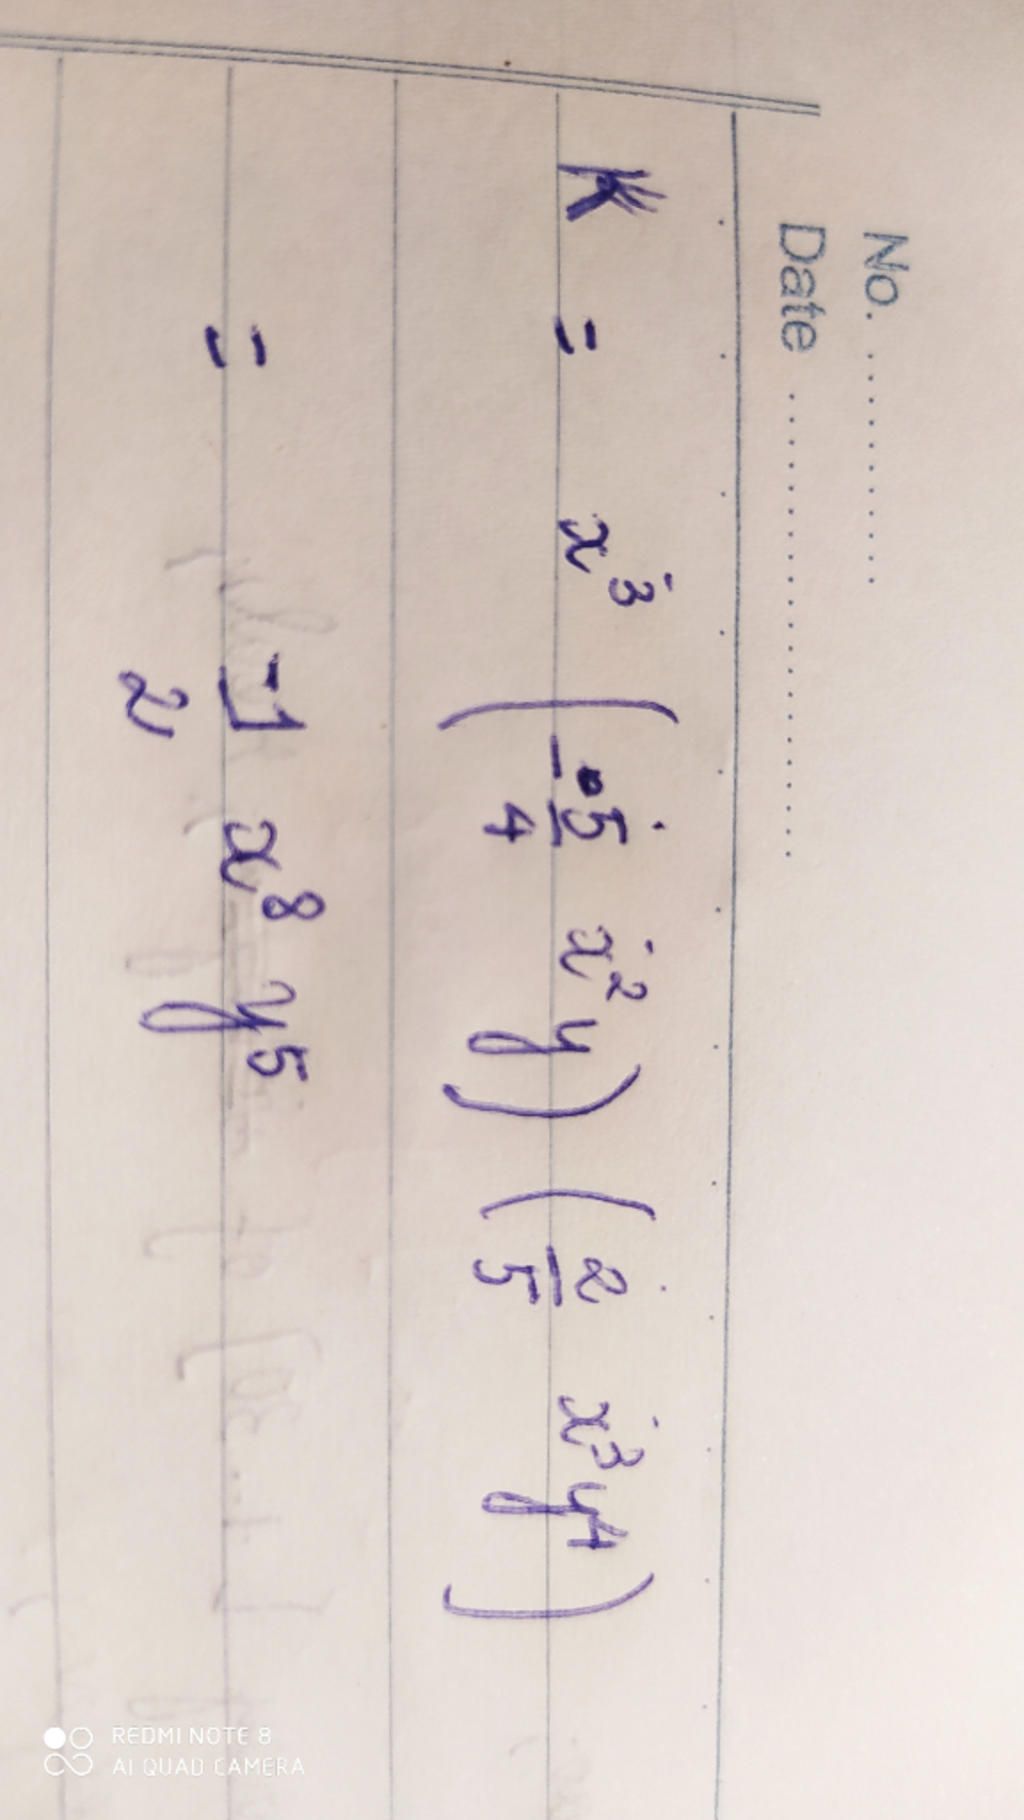 No. ............
Date ....................
K = x³ (-5/4 x²y) (2/5 x³y⁴)
= -1/2 x⁸ y⁵
REDMI NOTE 8
AI QUAD CAMERA